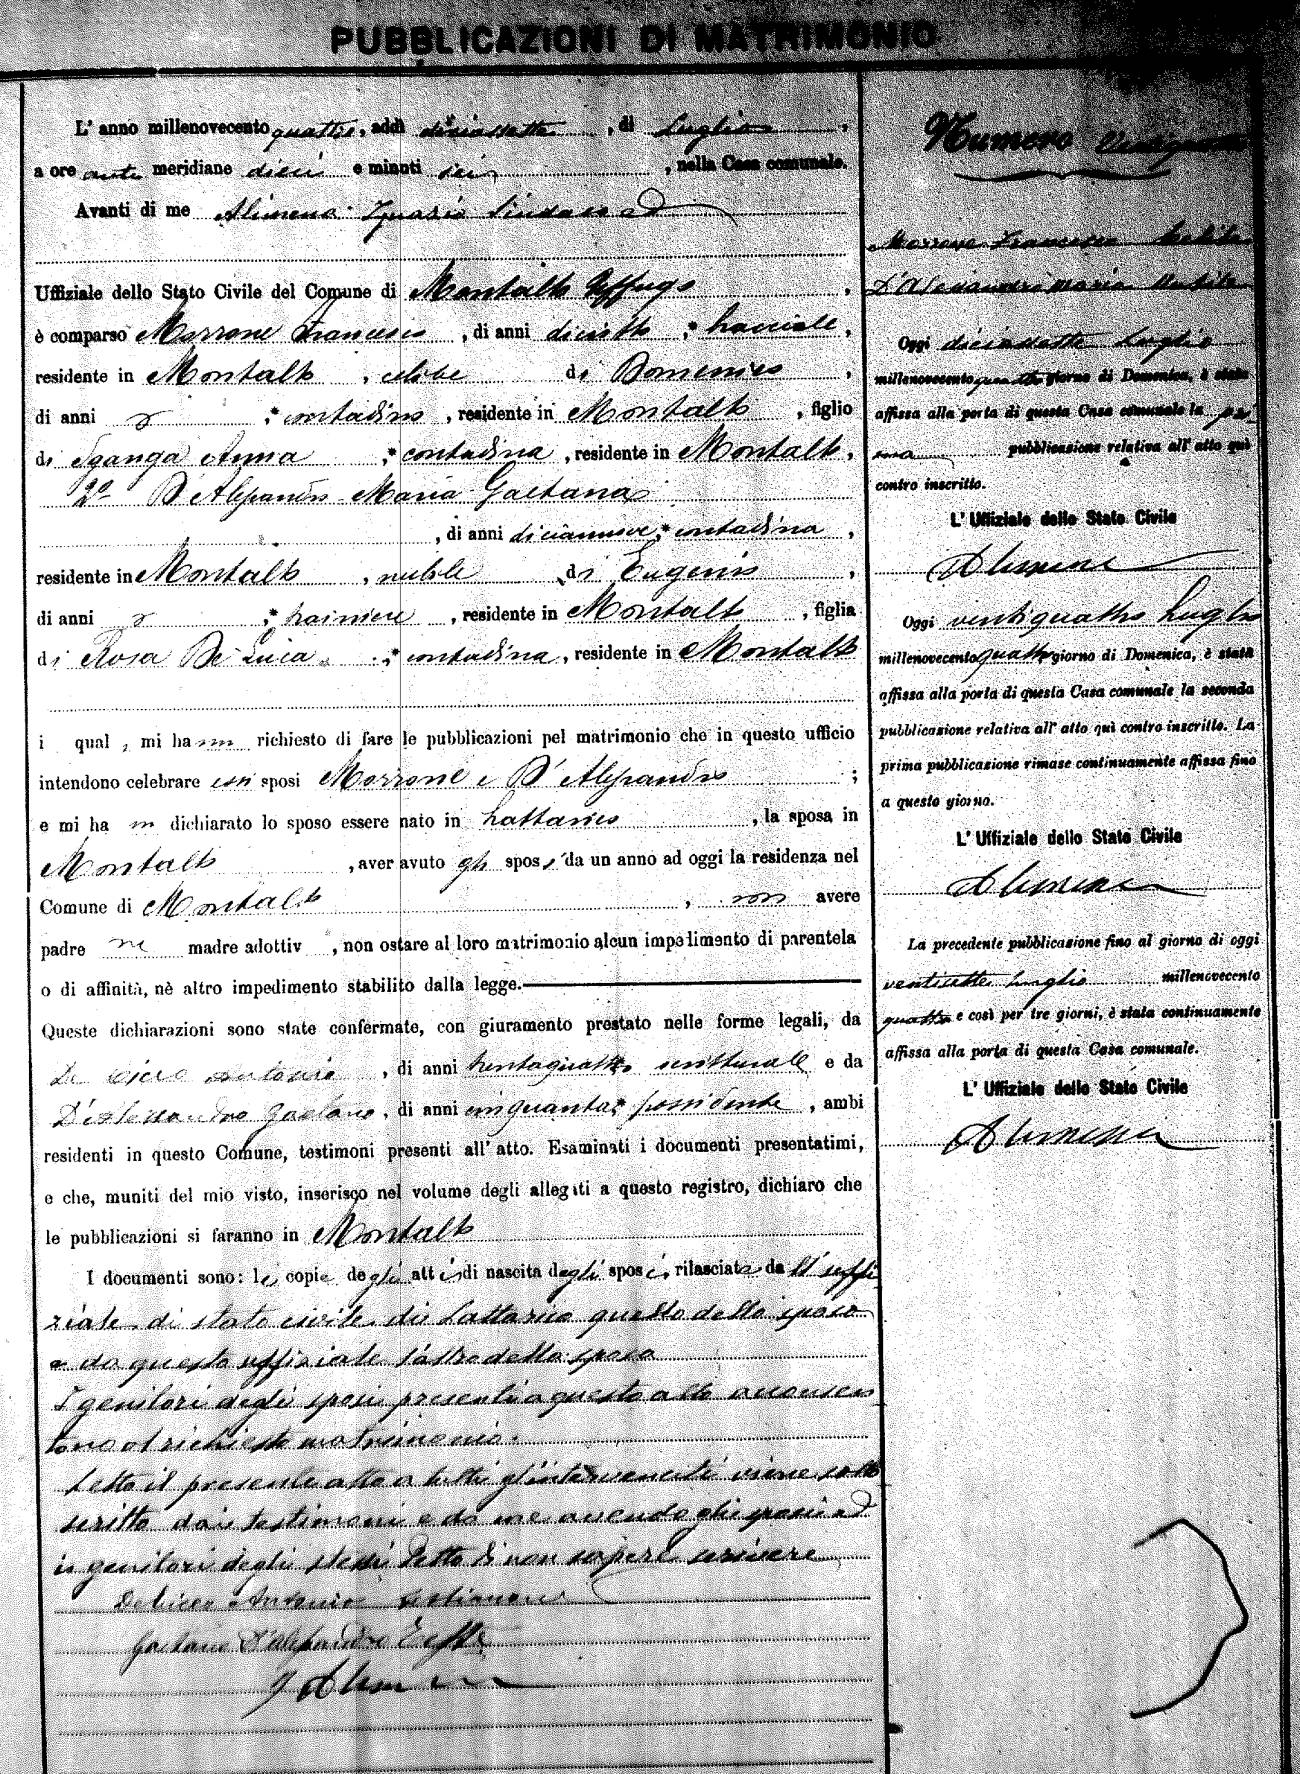 PUBBLICAZIONI DI MATRIMONIO
L' anno millenovecento quattro, addì diciassette, di Luglio,
a ore anti meridiane dieci e minuti sei, nella Casa comunale.
Avanti di me Alimena Ignazio Sindaco ed
Uffiziale dello Stato Civile del Comune di Montalto Uffugo,
è comparso Morrone Francesco, di anni diciotto, bracciale,
residente in Montalto, celibe di Domenico,
di anni, contadino, residente in Montalto, figlio
di Sganga Anna, contadina, residente in Montalto,
2º D'Alessandro Maria Gaetana
, di anni diciannove, contadina,
residente in Montalto, nubile di Eugenio,
di anni, trainiere, residente in Montalto, figlia
di Rosa De Luca, contadina, residente in Montalto
i qual, mi hanno richiesto di fare le pubblicazioni pel matrimonio che in questo ufficio
intendono celebrare essi sposi Morrone e D'Alessandro;
e mi ha dichiarato lo sposo essere nato in Lattarico, la sposa in
Montalto, aver avuto gli sposi da un anno ad oggi la residenza nel
Comune di Montalto, non avere
padre ne madre adottiv, non ostare al loro matrimonio alcun impedimento di parentela
o di affinità, nè altro impedimento stabilito dalla legge.
Queste dichiarazioni sono state confermate, con giuramento prestato nelle forme legali, da
De Cicco Antonio, di anni trentaquattro scritturale e da
D'Alessandro Gaetano, di anni cinquanta possidente, ambi
residenti in questo Comune, testimoni presenti all' atto. Esaminati i documenti presentatimi,
e che, muniti del mio visto, inserisco nel volume degli allegati a questo registro, dichiaro che
le pubblicazioni si faranno in Montalto
I documenti sono: le copie degli atti di nascita degli sposi, rilasciate da ll' uffi
ziale di stato civile di Lattarico quello dello sposo
e da questo uffiziale l'altro della sposa
I genitori degli sposi presenti a questo atto acconsen
tono al richiesto matrimonio.
Letto il presente atto a tutti gl'intervenuti viene sotto
scritto dai testimoni e da me avendo gli sposi ed
i genitori degli stessi detto di non sapere scrivere
De Cicco Antonio testimone
Gaetano D'Alessandro Teste
I Alimena
Numero
Morrone Francesco Celibe
D'Alessandro Maria Nubile
Oggi diciassette Luglio
millenovecento quattro giorno di Domenica, è stata
affissa alla porta di questa Casa comunale la pri
ma pubblicazione relativa all' atto quì
contro inscritto.
L' Uffiziale dello Stato Civile
Alimena
Oggi ventiquattro Luglio
millenovecento quattro giorno di Domenica, è stata
affissa alla porta di questa Casa comunale la seconda
pubblicazione relativa all' atto quì contro inscritto. La
prima pubblicazione rimase continuamente affissa fino
a questo giorno.
L' Uffiziale dello Stato Civile
Alimena
La precedente pubblicazione fino al giorno di oggi
ventisette Luglio millenovecento
quattro e così per tre giorni, è stata continuamente
affissa alla porta di questa Casa comunale.
L' Uffiziale dello Stato Civile
Alimena